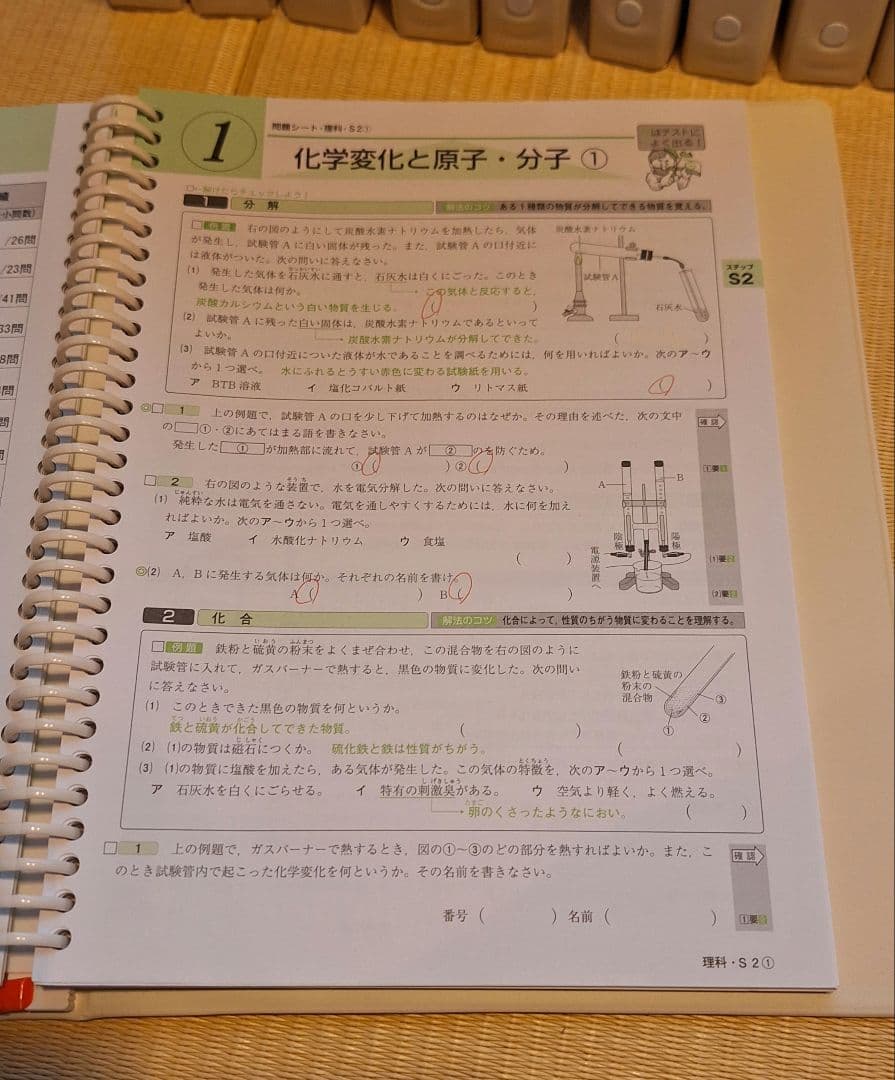 績
小問数)
/26問
/23問
/41問
33問
8問
問
問
問
1
問題シート・理科・S2①
化学変化と原子・分子 ①
はテストに
よく出る!
□←解けたらチェックしよう!
1 分解
解法のコツ ある1種類の物質が分解してできる物質を覚える。
ステップ
S2
□例題 右の図のようにして炭酸水素ナトリウムを加熱したら,気体
が発生し,試験管Aに白い固体が残った。また,試験管Aの口付近に
は液体がついた。次の問いに答えなさい。
(1) 発生した気体を石灰水に通すと,石灰水は白くにごった。このとき
発生した気体は何か。 この気体と反応すると,
炭酸カルシウムという白い物質を生じる。 ( )
(2) 試験管Aに残った白い固体は,炭酸水素ナトリウムであるといって
よいか。 炭酸水素ナトリウムが分解してできた。 ( )
(3) 試験管Aの口付近についた液体が水であることを調べるためには,何を用いればよいか。次のア〜ウ
から1つ選べ。 水にふれるとうすい赤色に変わる試験紙を用いる。
ア BTB溶液 イ 塩化コバルト紙 ウ リトマス紙 ( )
炭酸水素ナトリウム
試験管A
石灰水
◎□1 上の例題で,試験管Aの口を少し下げて加熱するのはなぜか。その理由を述べた,次の文中
の□①・②にあてはまる語を書きなさい。
発生した ① が加熱部に流れて,試験管Aが ② のを防ぐため。
①( ) ②( )
確認
①要1
□2 右の図のような装置で,水を電気分解した。次の問いに答えなさい。
(1) 純粋な水は電気を通さない。電気を通しやすくするためには,水に何を加え
ればよいか。次のア〜ウから1つ選べ。
ア 塩酸 イ 水酸化ナトリウム ウ 食塩
( )
◎(2) A,Bに発生する気体は何か。それぞれの名前を書け。
A( ) B( )
A
B
陰極
陽極
電源装置へ
(1)要2
(2)要2
2 化合
解法のコツ 化合によって,性質のちがう物質に変わることを理解する。
□例題 鉄粉と硫黄の粉末をよくまぜ合わせ,この混合物を右の図のように
試験管に入れて,ガスバーナーで熱すると,黒色の物質に変化した。次の問い
に答えなさい。
(1) このときできた黒色の物質を何というか。
鉄と硫黄が化合してできた物質。 ( )
(2) (1)の物質は磁石につくか。 硫化鉄と鉄は性質がちがう。 ( )
(3) (1)の物質に塩酸を加えたら,ある気体が発生した。この気体の特徴を,次のア〜ウから1つ選べ。
ア 石灰水を白くにごらせる。 イ 特有の刺激臭がある。 ウ 空気より軽く,よく燃える。
卵のくさったようなにおい。 ( )
鉄粉と硫黄の
粉末の
混合物
①
②
③
□1 上の例題で,ガスバーナーで熱するとき,図の①〜③のどの部分を熱すればよいか。また,こ
のとき試験管内で起こった化学変化を何というか。その名前を書きなさい。
番号( ) 名前( )
確認
理科・S2①